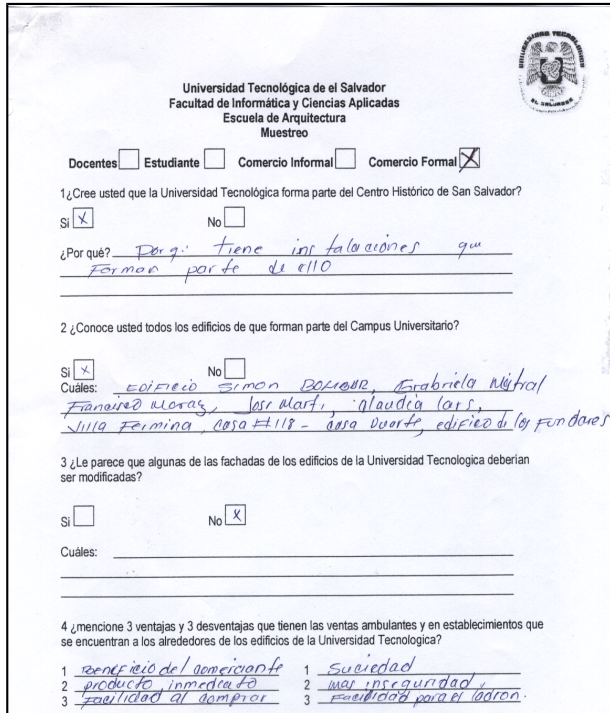 UNIVERSIDAD TECNOLOGICA
EL SALVADOR
Universidad Tecnológica de el Salvador
Facultad de Informática y Ciencias Aplicadas
Escuela de Arquitectura
Muestreo
Docentes Estudiante Comercio Informal Comercio Formal X
1¿Cree usted que la Universidad Tecnológica forma parte del Centro Histórico de San Salvador?
Si X No
¿Por qué? Porq: tiene instalaciones que
Forman parte de ello
2 ¿Conoce usted todos los edificios de que forman parte del Campus Universitario?
Si X No
Cuáles: EDIFICIO SIMON BOLIVAR, Grabriela Mistral
Francisco Moraz, Jose Marti, glaudia lars,
Villa Fermina, casa #118 - casa Duarte, edifico de los Fundares
3 ¿Le parece que algunas de las fachadas de los edificios de la Universidad Tecnologica deberian
ser modificadas?
Si No X
Cuáles:
4 ¿mencione 3 ventajas y 3 desventajas que tienen las ventas ambulantes y en establecimientos que
se encuentran a los alrededores de los edificios de la Universidad Tecnologica?
1 Beneficio del comerciante 1 Suciedad
2 producto inmediato 2 mas inseguridad.
3 Facilidad al comprar 3 Facilidad para el ladron.